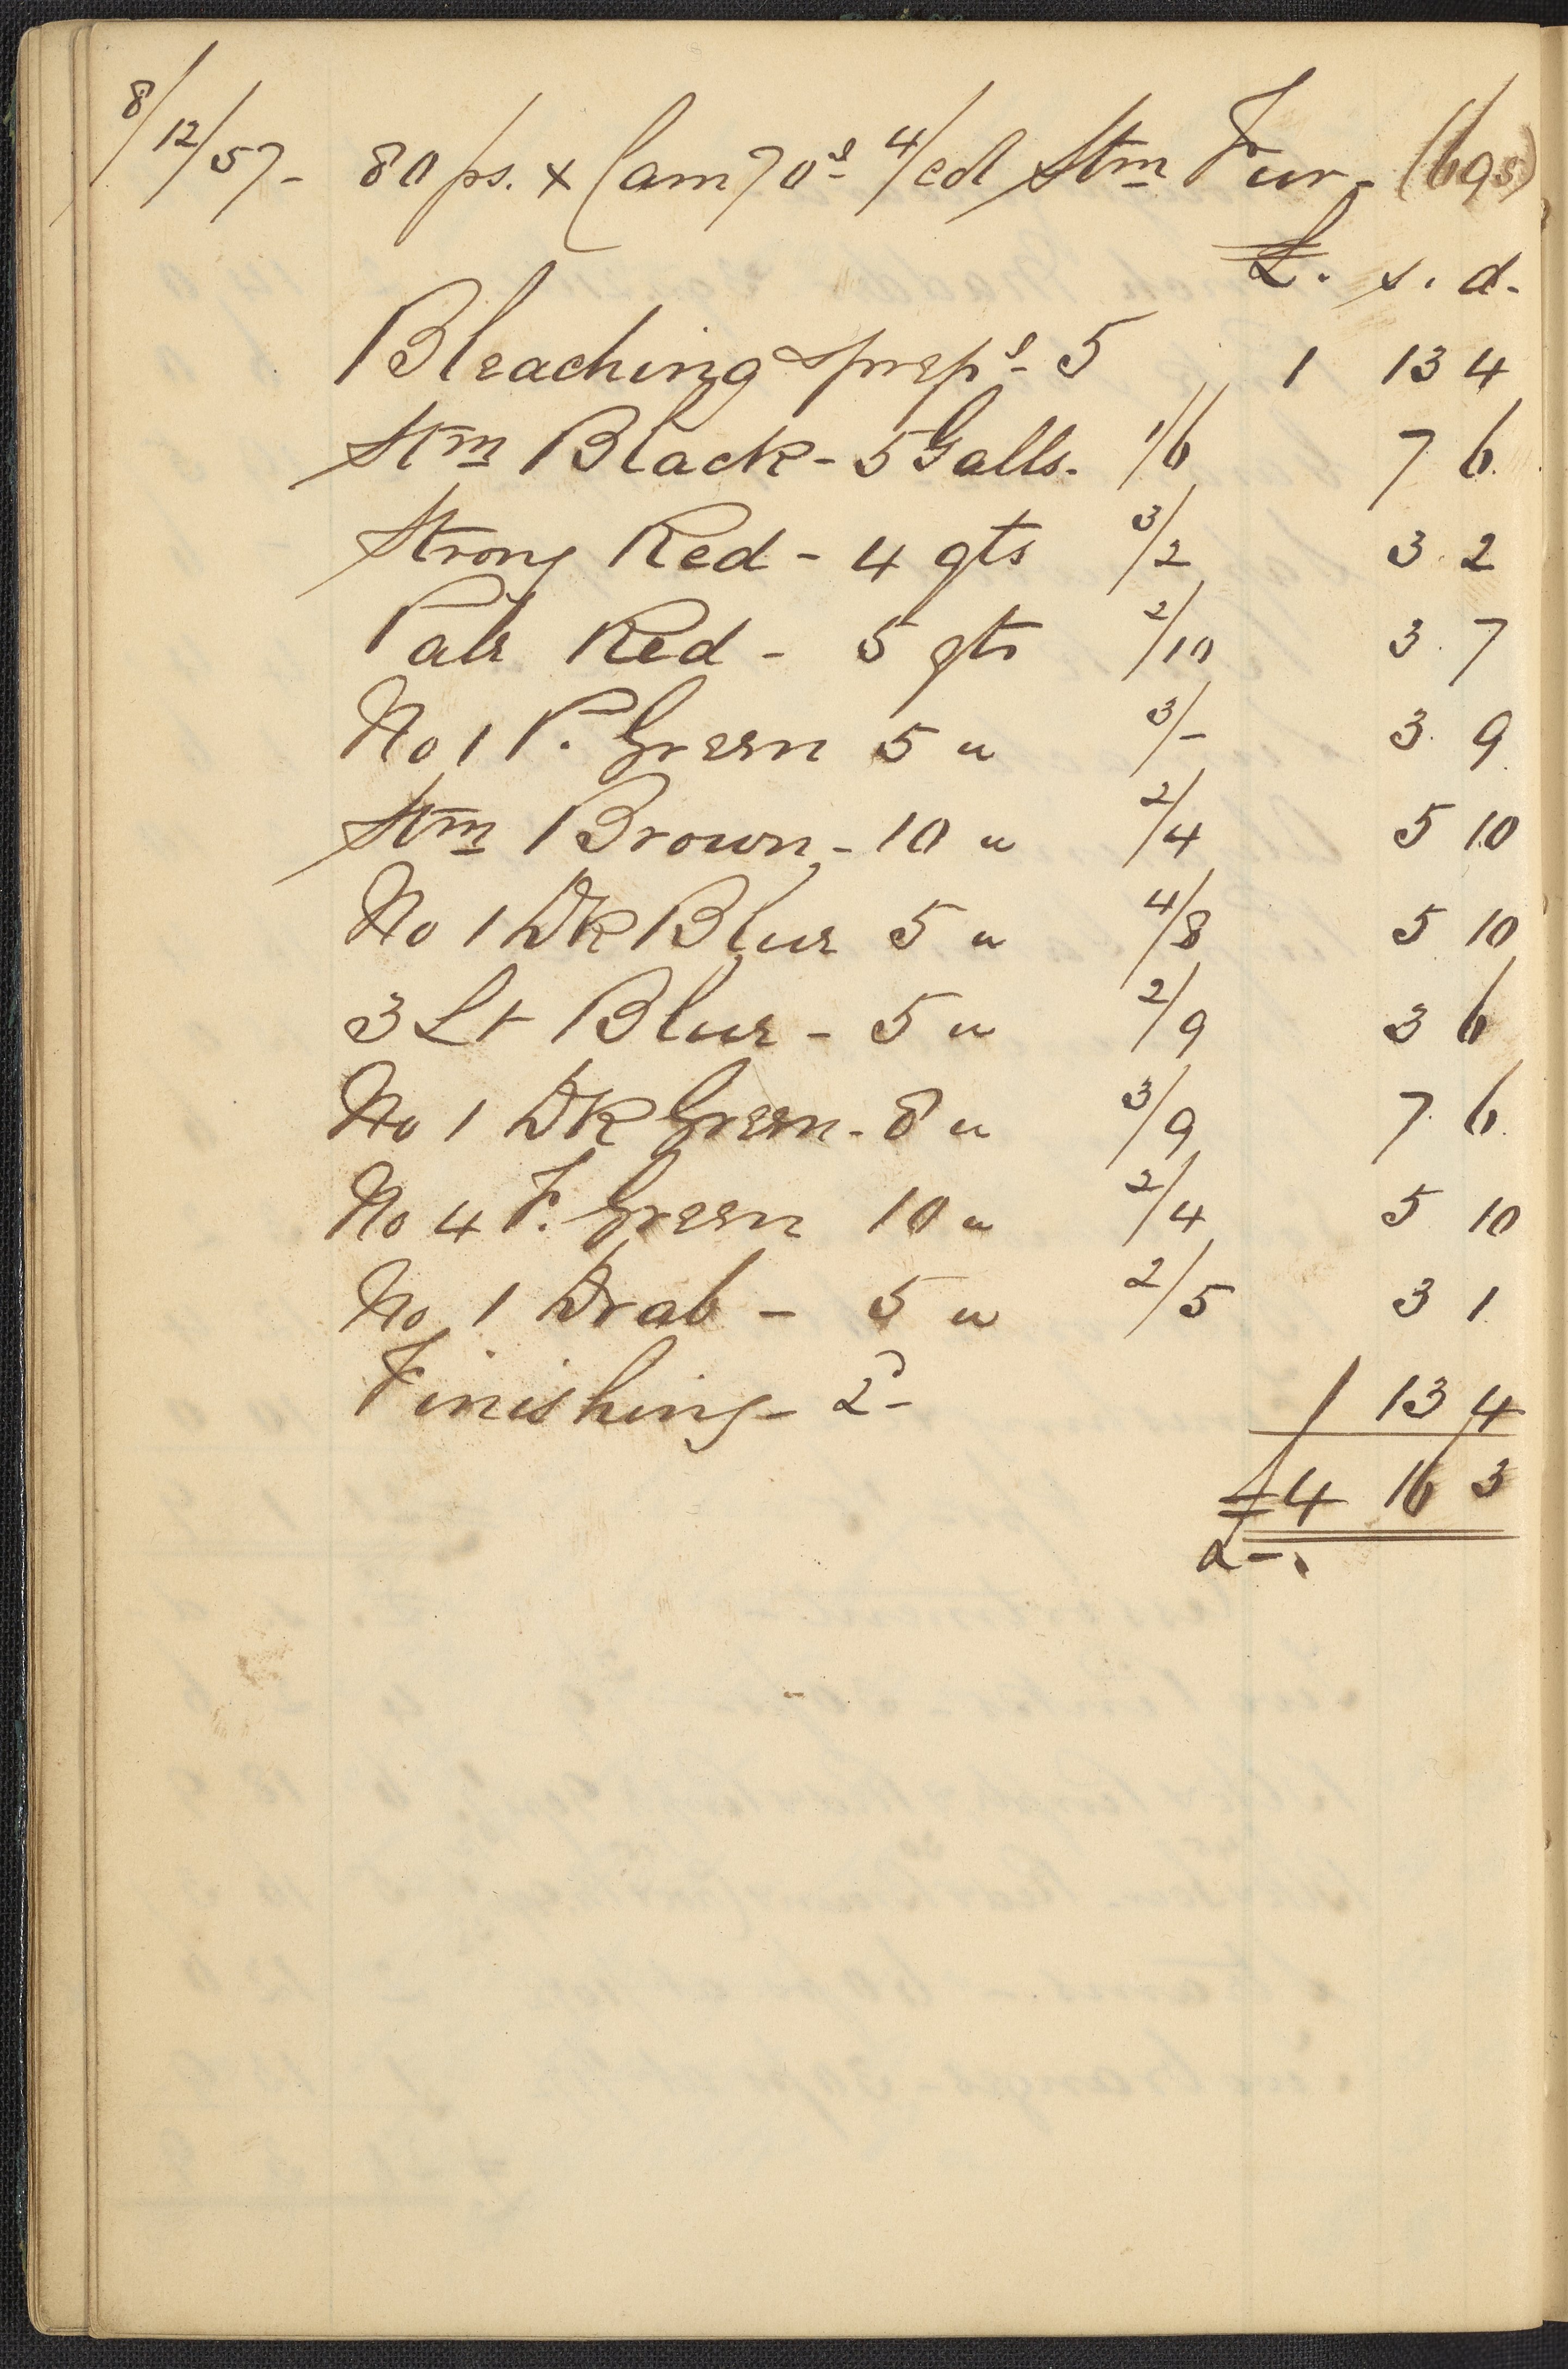 8/12/57- 80 ps. x Cam 70s 4/cd Stm Fur- (6qs)
£. s. d.
Bleaching & preps- 5 1 13 4
Stm Black - 5 Galls. 1/6 7 6
Strong Red - 4 qts 3/2 3. 2
Pale Red - 5 qts 2/10 3. 7
No 1 P. Green 5 " 3/- 3. 9
Stm Brown - 10 " 2/4 5 10
No 1 Dk Blue 5 " 4/8 5 10
3 Lt Blue - 5 " 2/9 3 6
No 1 Dk Green - 8 " 3/9 7. 6
No 4 F. Green 10 " 2/4 5 10
No 1 Drab - 5 " 2/5 3 1
Finishing - 5 1 13 4
£4 16 3